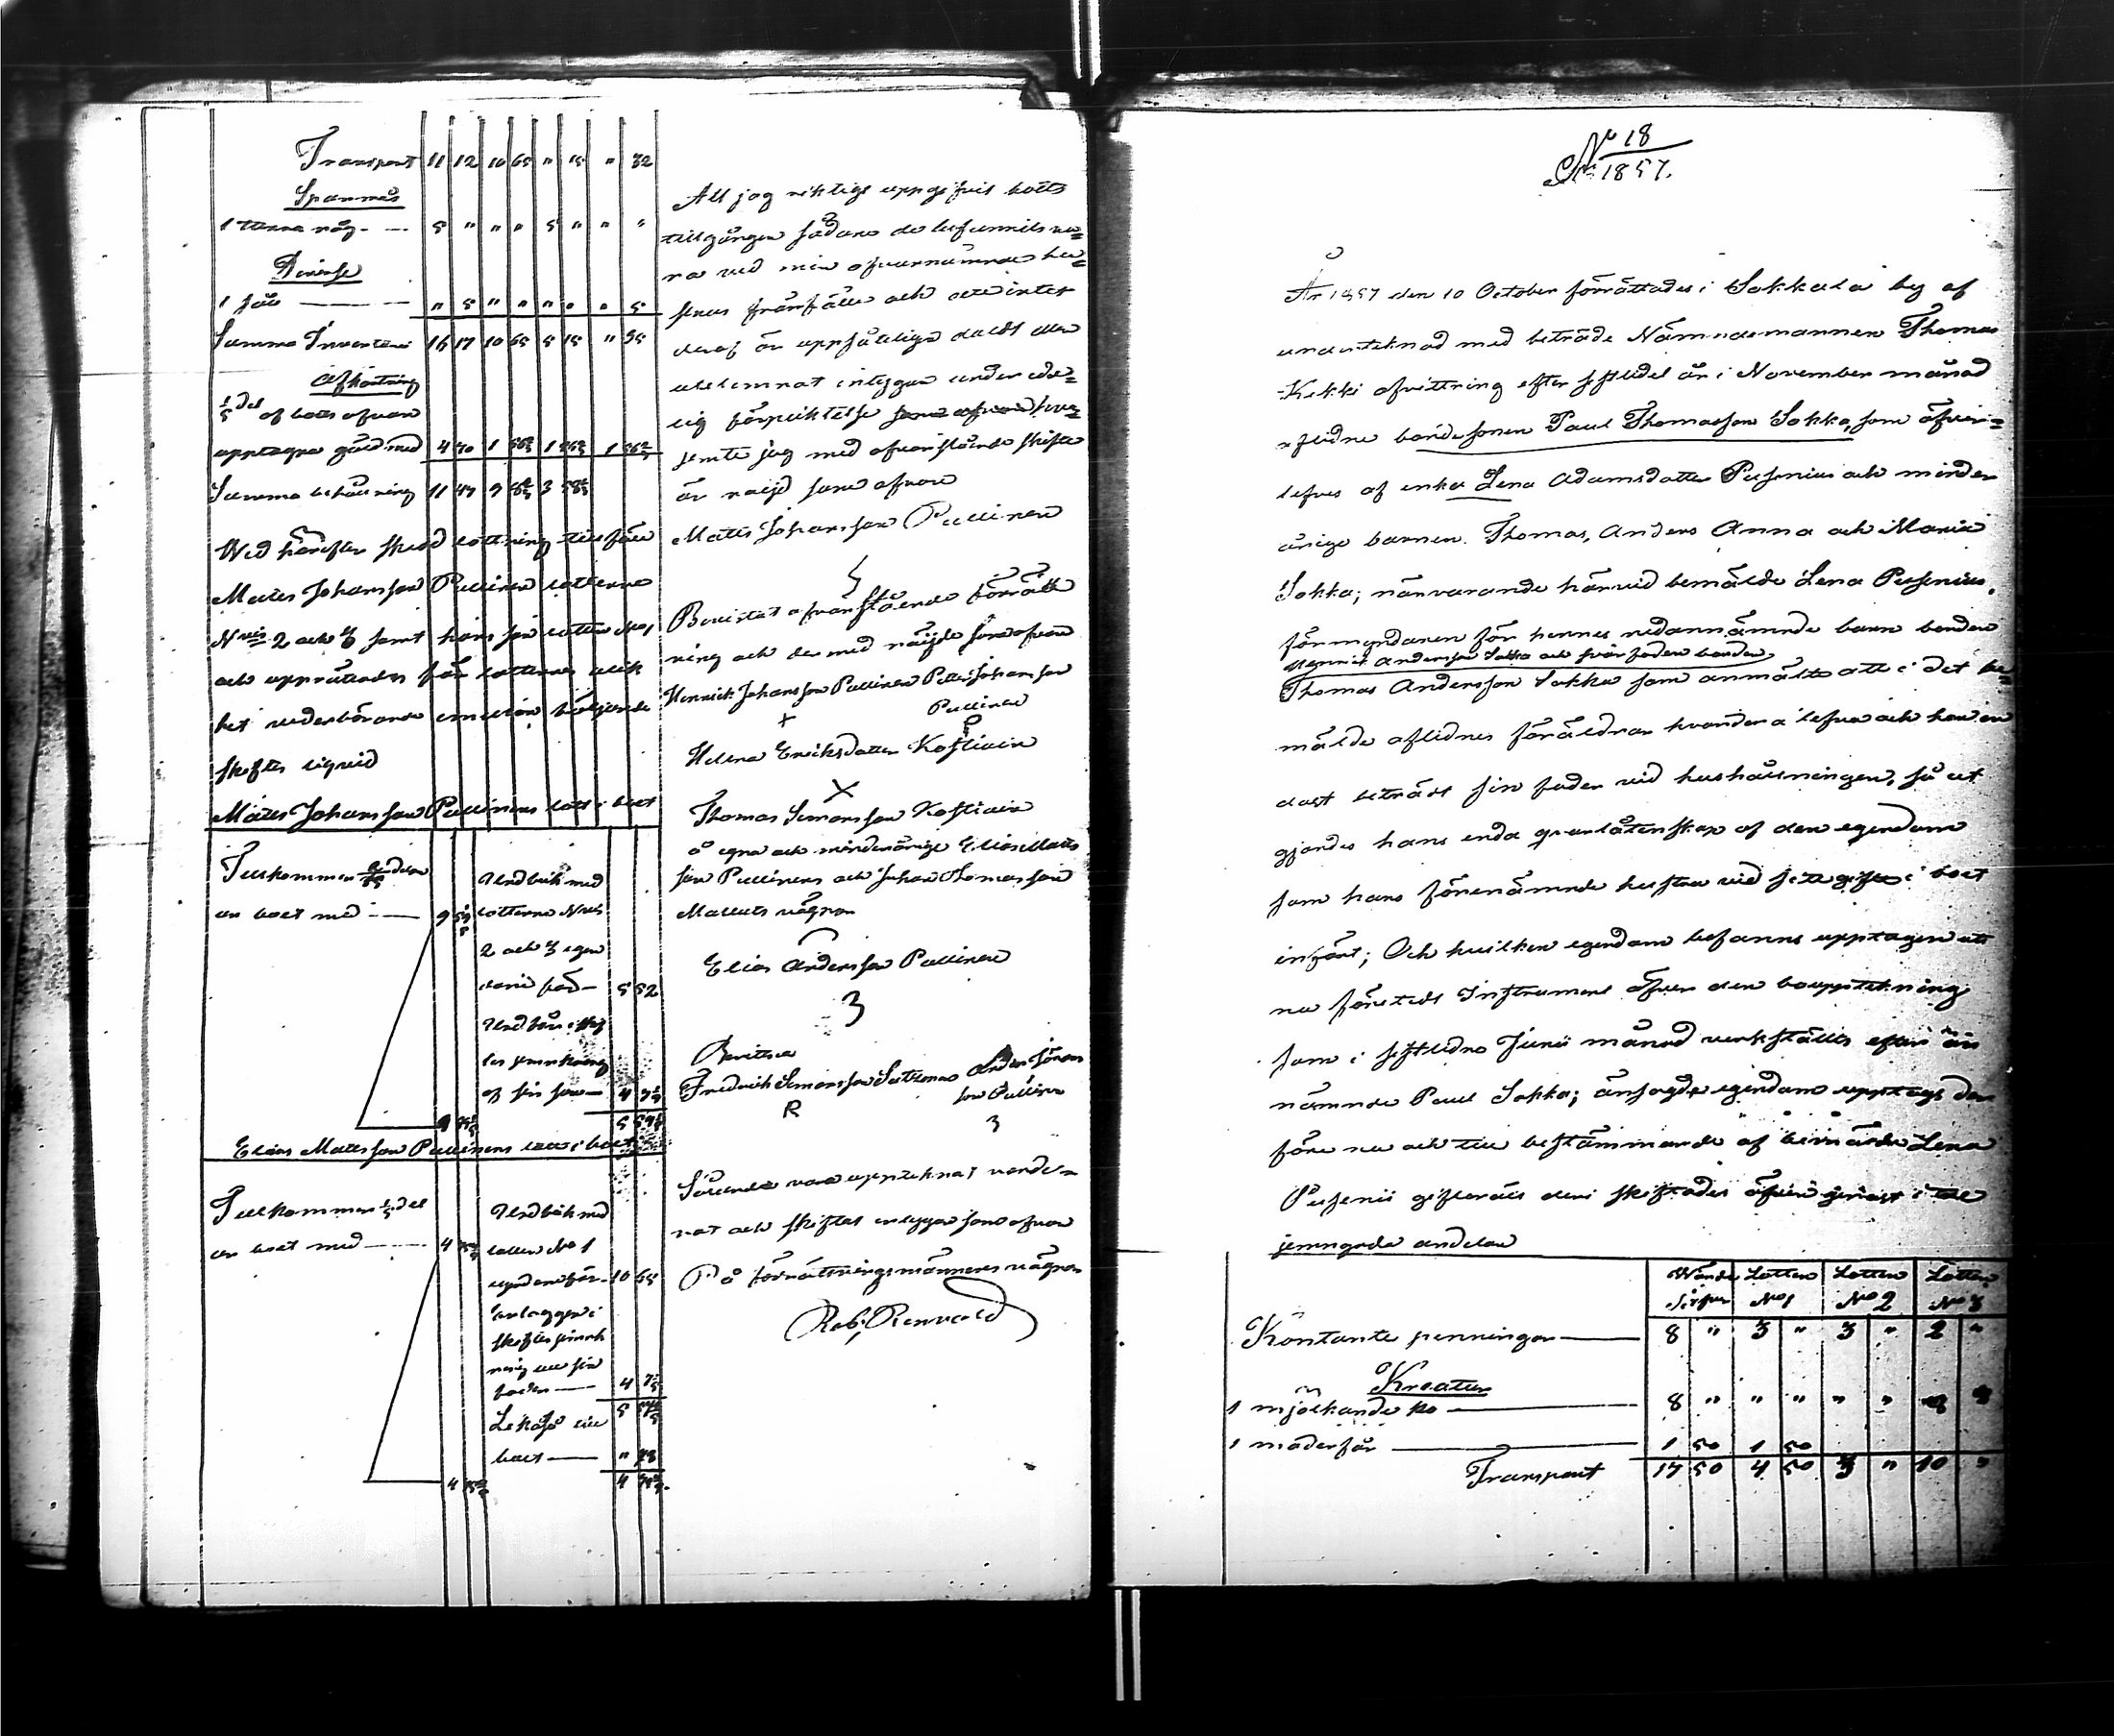 Transport 11 12 10 65 " 15 " 32
Spanmål
1 tunna råg 5 " " " 5 " " "
Diverse
1 såll " 5 " " " " " 5
Summa Inventarii 16 17 10 65 5 15 " 35
Afkortning
1/5 del af boets ofvan
upptagna gäld med 4 70 1
Summa behållning 11 47 9 3
Wid härefter skedd lottning tillföll
Matts Johansson Pullinen lotterne
N:ris 2 och 3 samt hans son lotten No 1
och uppråttades för lotternes olik
het vederbörande emellan följande
skiftes liquid
Matts Johansson Pullinens lott i boet
Tillkommer delar
ur boet med 9
Undbäk med
lotterne N:ris
2 och 3 egen
dom för 5 52
Undfår i skif
tes
af sin son 4
Elias Mattsson Pullinens lott i boet
Tillkommer 1/5 del
ur boet med 4
Undbäk med
lotten No 1
egendom för 10 65
skiftes
till sin
fader 4
5
boet " 78
4
Att jag riktigt uppgifvit boets
tillgångar sådane de befunnits va=
ra vid min ofvannämnde hu=
strus frånfälle och att intet
deraf är uppsåteligen doldt eller
utelemnat intygar under ede=
lig förpliktelse som ofvan hvar=
jemte jag med ofvanstående skifte
är nöjd som ofvan
Matts Johansson Pullinen
Bevistat ofvanstående förrätt
ning och dermed nöjde som ofvan
Henrick Johansson Pullinen Petter Johansson
Pullinen
Helena Ericksdotter Kostiain
X
Thomas Simonsson Kostiain
å egna och minderårige Elias Matts
son Pullinens och Johan Thomasson
vägnar
Elias Andersson Pullinen
3
Bevittna
Fredrich Simonsson Anders Göran
R
son Pullinen
3
Sålunda vara upptecknat värde=
rat och skiftat intygar som ofvan
På förrättningsmännens vägnar
Rob. Renvald
No 18
1857.
År 1857 den 10 October förrättades i Sokkala by af
undertecknad med biträde Nämndemannen Thomas
Kekki afvittring efter sistledet år i November månad
aflidne bondesonen Paul Thomasson Sokka, som öfver=
lefves af enka Lena Adamsdotter Pusenius och minder
årige barnen Thomas, Anders Anna och Maria
Sokka; närvarande härvid bemälde Lena Pusenius,
förmyndaren för hennes nedannämnde barn bonden
Henrick Andersson Sokka och svärfadren bonden
Thomas Andersson Sokka som anmälte att i det be=
mälde aflidnes föräldrar hvardera lefva och han en
dast biträdt sin fader vid hushållningen, så ut
gjordes hans enda qvarlåtenskap af den egendom
som hans förenämnde hustru vid sitt gifte i boet
infört; Och hvilken egendom befanns upptagen uti
nu företedt Instrument öfver den bouppteckning
som i sistledne Junii månad verkställts efter än
nämnde Paul Sokka; änsagde egendom upptogs der
före nu och till bestämmande af bemälde Lena
Pusenii giftorätt deri skiftades äfven genast i tre
jemngoda andelar
Värde Lotten Lotten Lotten
Silfver No 1 No 2 No 3
Kontante penningar 8 " 3 " 3 " 2 "
Kreatur
1 mjölkande ko 8 " " " " " 8 "
1 moderfår 1 50 1 50
Transport 17 50 4 50 3 " 10 "